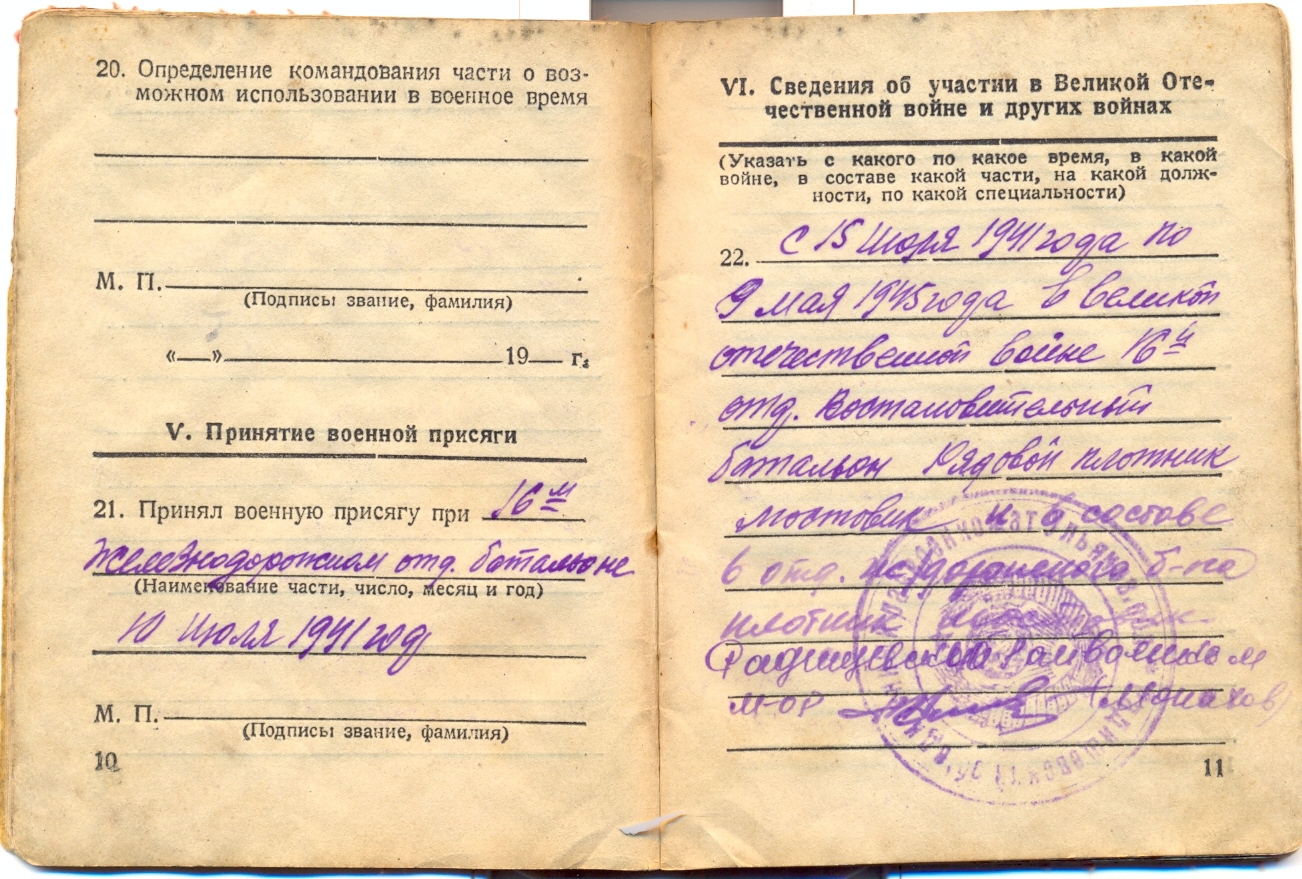 20. Определение командования части о воз-
можном использовании в военное время
М. П.
(Подписы звание, фамилия)
«__»____19__ г.
V. Принятие военной присяги
21. Принял военную присягу при 16м
Железнодорожном отд. батальоне
(Наименование части, число, месяц и год)
10 июля 1941 год
М. П.
(Подписы звание, фамилия)
10
VI. Сведения об участии в Великой Оте-
чественной войне и других войнах
(Указать с какого по какое время, в какой
войне, в составе какой части, на какой долж-
ности, по какой специальности)
22. С 15 июля 1941 года по
9 мая 1945 года в великой
отечественной войне 16й
отд. востановительный
батальон Рядовой плотник
мостовик и в составе
в отд. б-на
плотник
Радищевский Райвоенком
м-ор (Монахов)
11